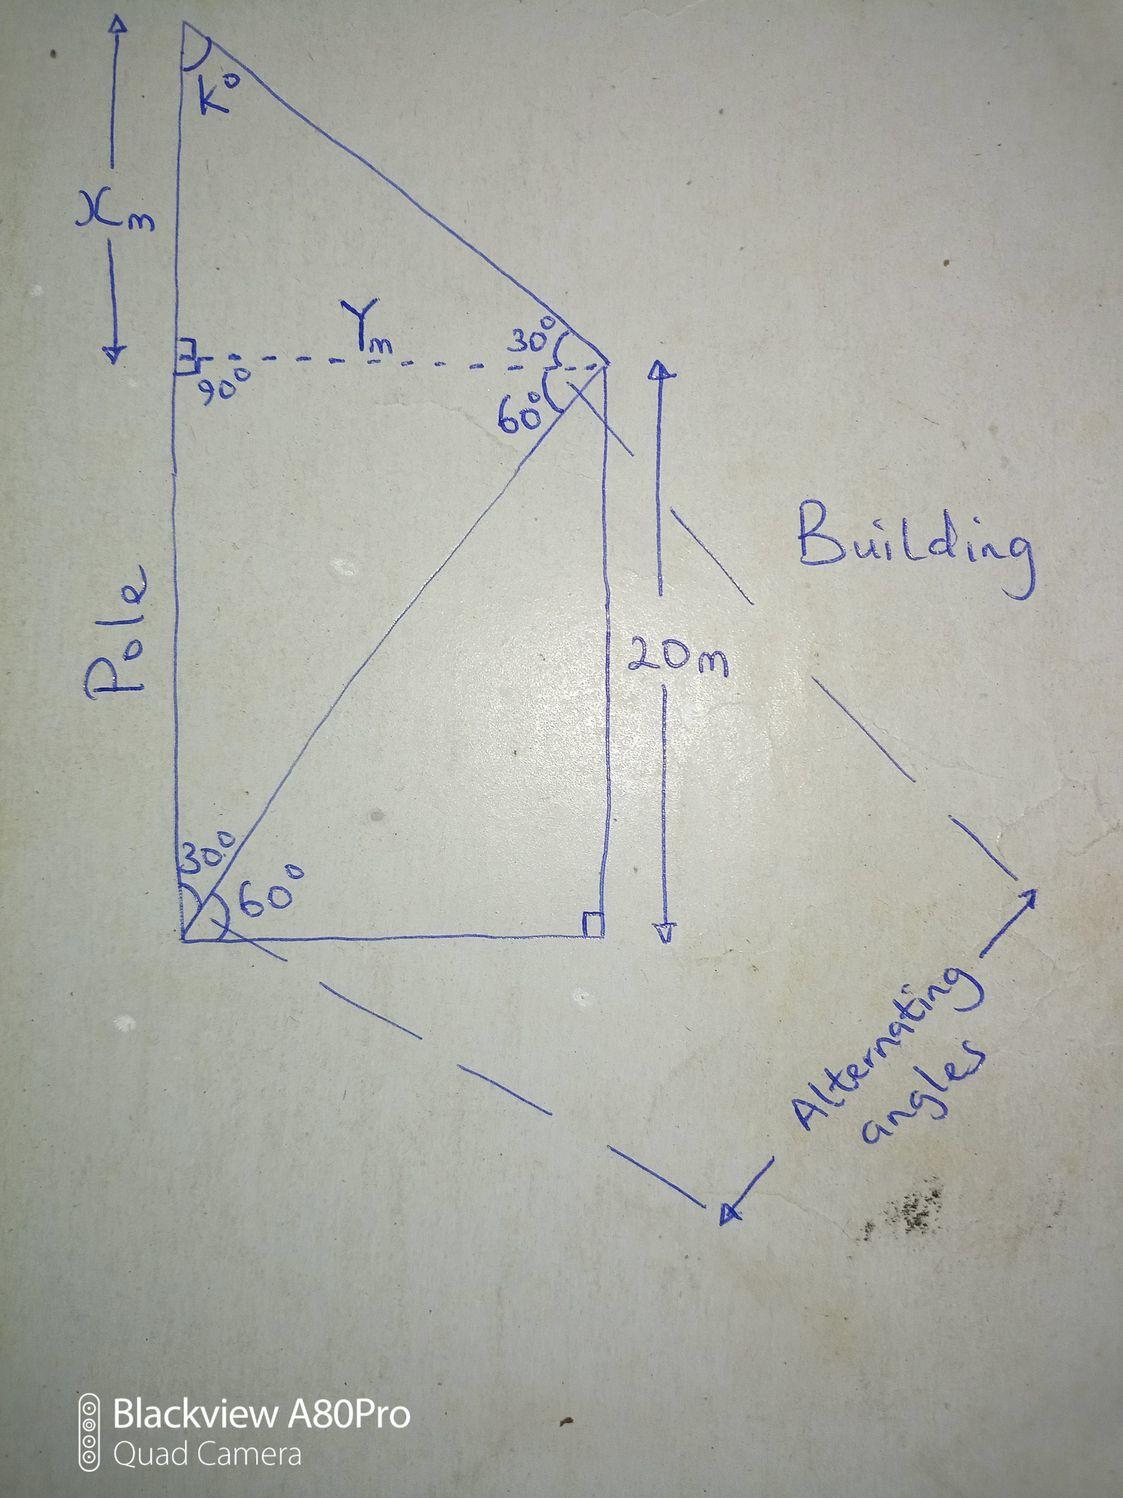 K°
Xm
Ym
30°
90°
60°
Building
Pole
20m
30°
60°
Alternating
angles
Blackview A80Pro
Quad Camera